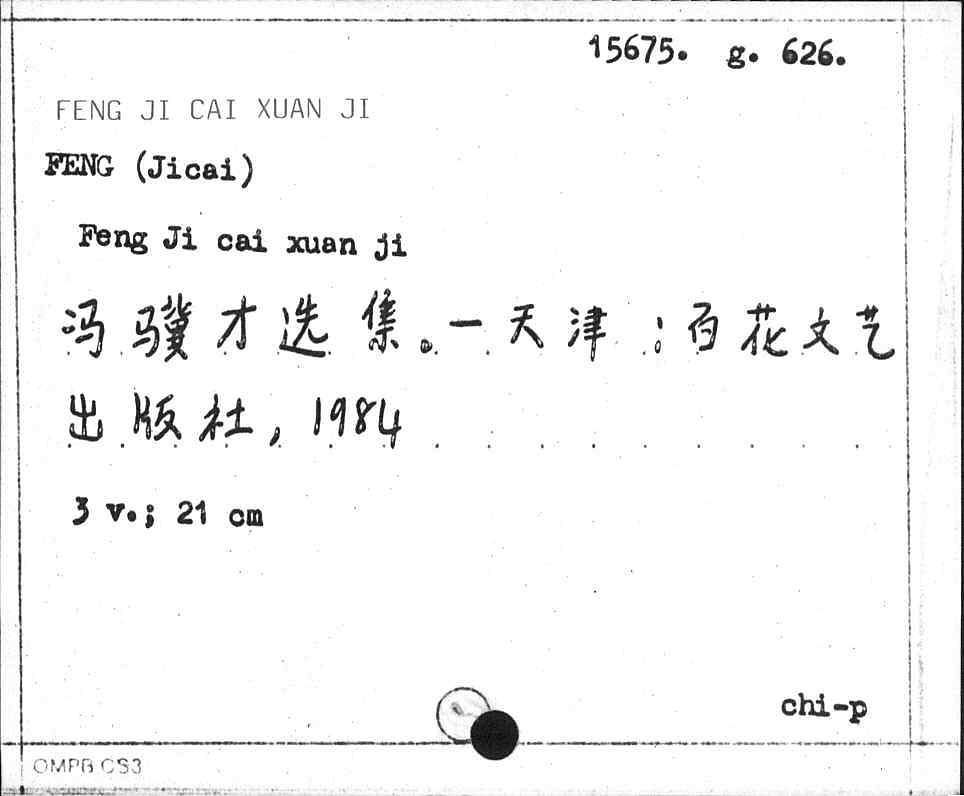 15675. g. 626.
FENG JI CAI XUAN JI
FENG (Jicai)
Feng Ji cai xuan ji
冯骥才选集。—天津:百花文艺
出版社, 1984
3 v.; 21 cm
chi-p
OMPB CS3